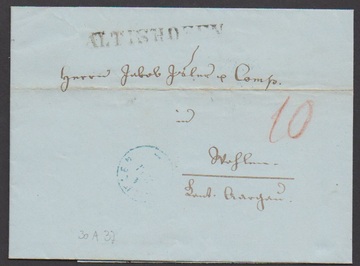 ALTISHOFEN
Herrn Jacob Isler & Comp.
in
10
Wohlen
Cant. Aargau.
30 A. 37